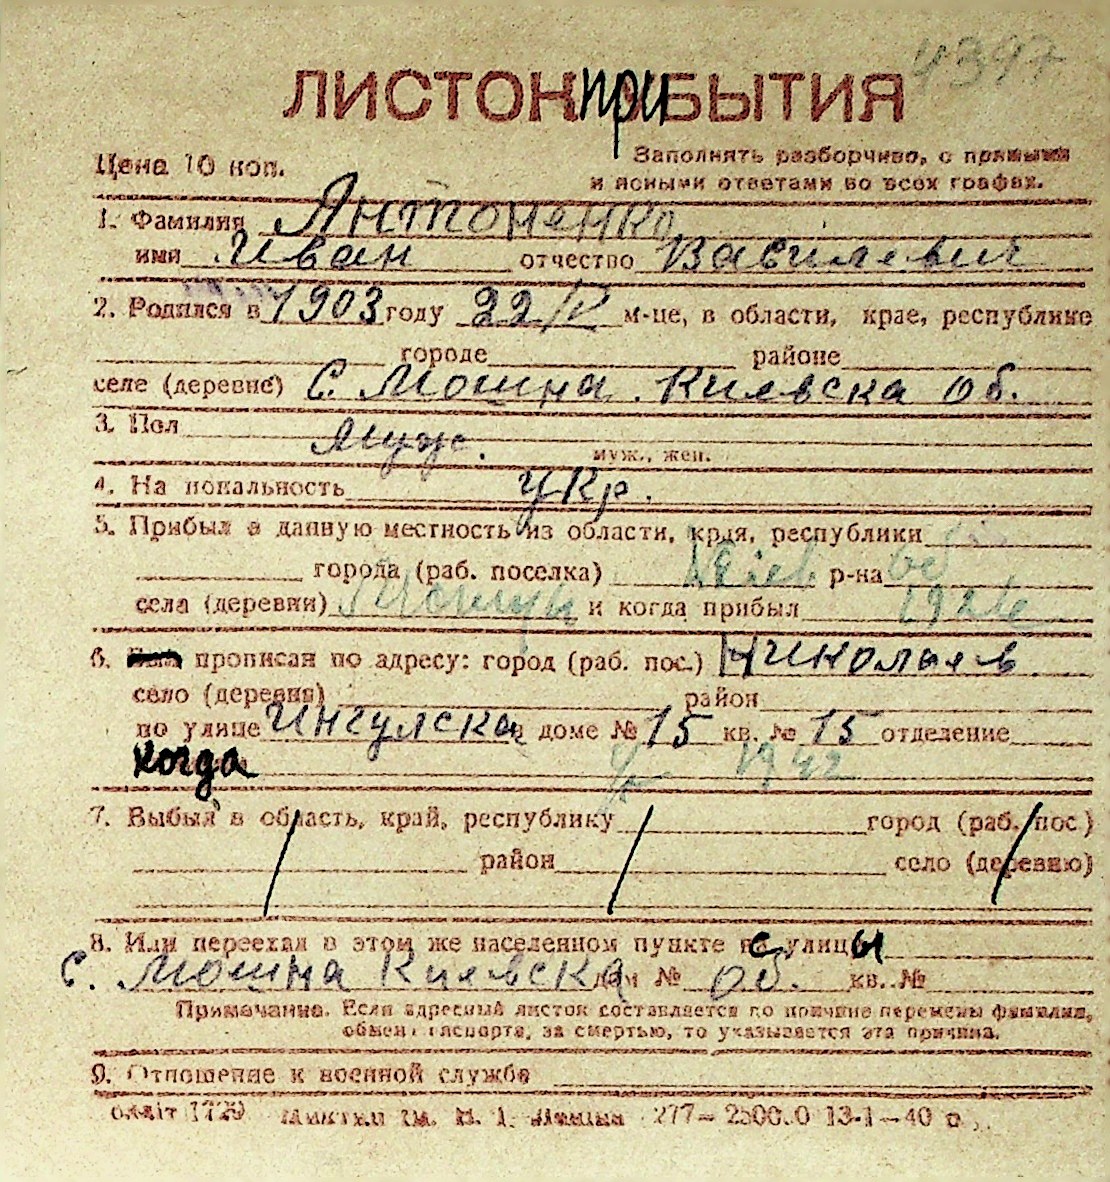 4397
ЛИСТОК при БЫТИЯ
Цена 10 коп.
Заполнять разборчиво, с прямыми
и ясными ответами во всех графах.
1. Фамилия Антоненко
имя Иван отчество Василевич
2. Родился в 1903 году 22/IV м-це, в области, крае, республике
городе районе
селе (деревне) с. Мошна. Киевска об.
3. Пол Муж.
муж., жен.
4. Национальность укр.
5. Прибыл в данную местность из области, края, республики
города (раб. поселка) Киев р-на об
села (деревни) и когда прибыл 1926
6. прописан по адресу: город (раб. пос.) Николаев
село (деревня) район
по улице Ингулска доме № 15 кв. № 15 отделение
когда 1942
7. Выбыл в область, край, республику город (раб. пос)
район село (деревню)
8. Или переехал в этом же населенном пункте с улицы
с. Мошна Киевска дом № об. кв. №
Примечание. Если адресный листок составляется по причине перемены фамилии,
обмен паспорта, за смертью, то указывается эта причина.
9. Отношение к военной службе
облліт 1729 277— 13-1—40